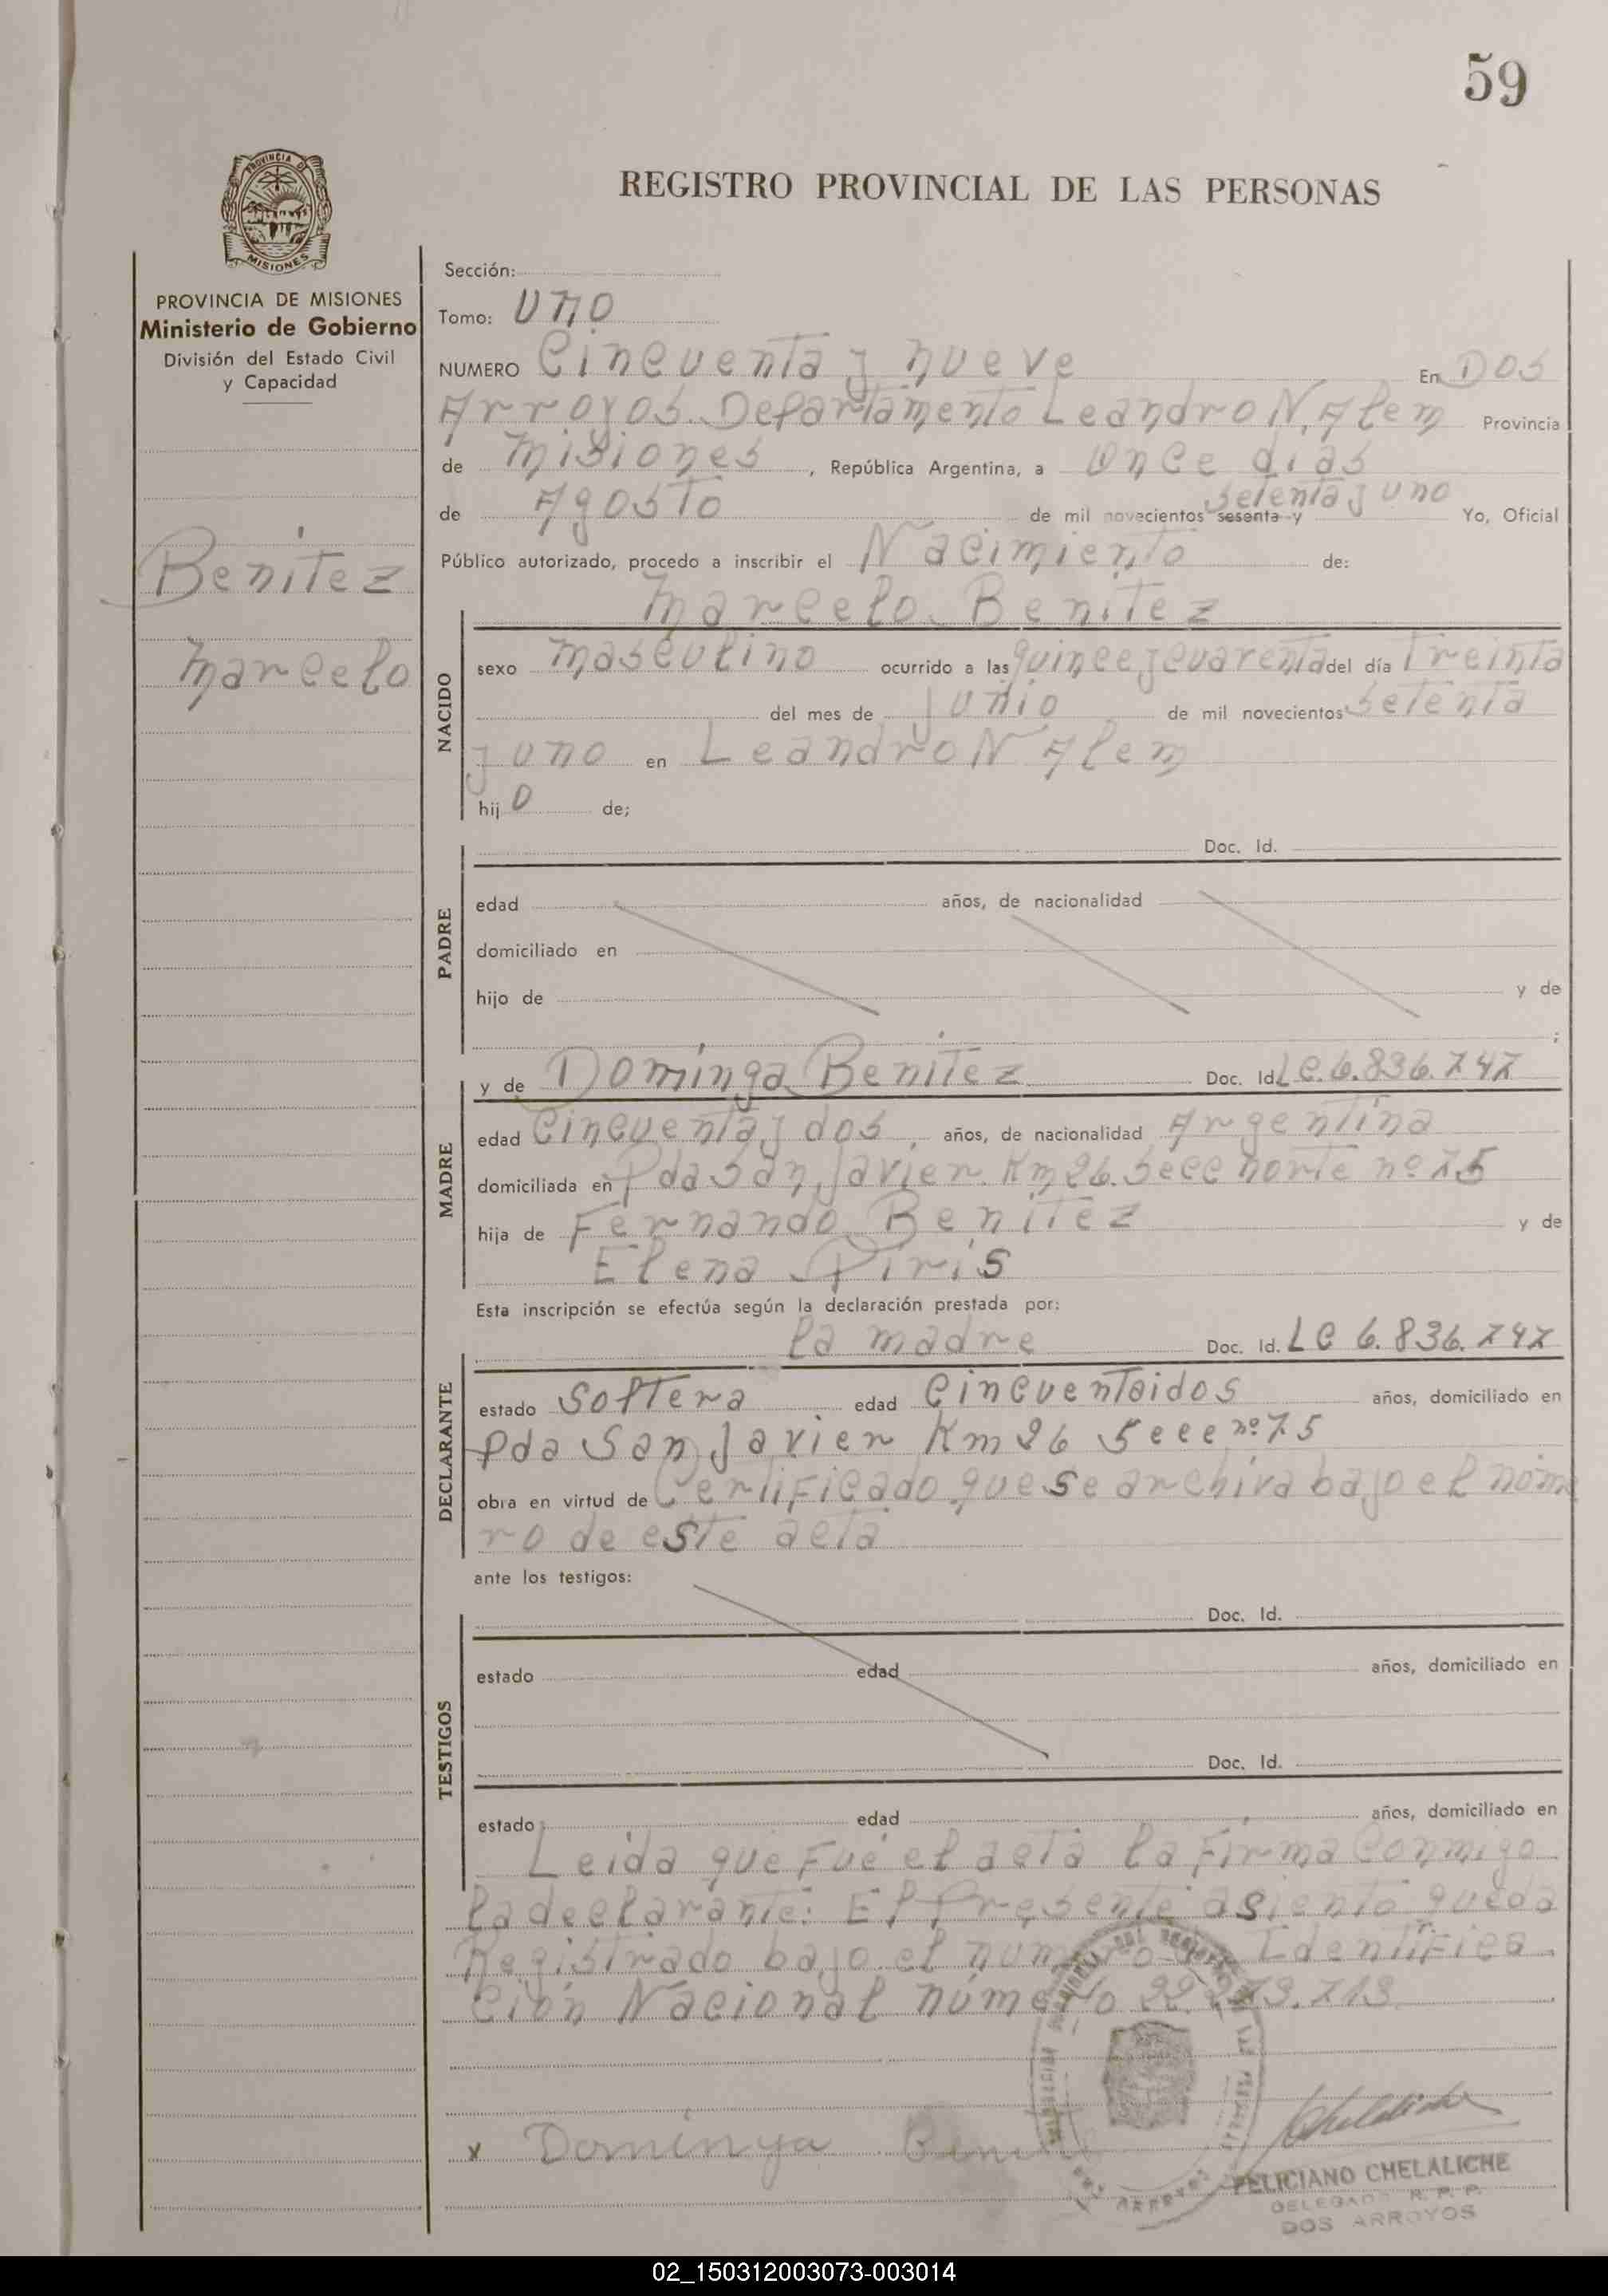 59
REGISTRO PROVINCIAL DE LAS PERSONAS
PROVINCIA DE MISIONES
PROVINCIA DE MISIONES
Ministerio de Gobierno
División del Estado Civil
y Capacidad
Benítez
Marcelo
Sección:
Tomo: Uno
NUMERO Cincuenta y nueve En Dos
Arroyos. Departamento Leandro N. Alem Provincia
de Misiones, República Argentina, a Once dias
de Agosto de mil novecientos sesenta y setenta y uno Yo, Oficial
Público autorizado, procedo a inscribir el Nacimiento de:
Marcelo Benitez
NACIDO
sexo Masculino ocurrido a las quince y cuarenta del día Treinta
del mes de Junio de mil novecientos setenta
y uno en Leandro N Alem
hijo de;
PADRE
Doc. Id.
edad años, de nacionalidad
domiciliado en
hijo de y de
;
MADRE
y de Dominga Benitez Doc. Id. LC. 6.836.747
edad Cincuenta y dos, años, de nacionalidad Argentina
domiciliada en Pda San Javier. Km 26. Secc norte nº 75
hija de Fernando Benitez y de
Elena Piris
Esta inscripción se efectúa según la declaración prestada por:
DECLARANTE
la madre Doc. Id. LC 6.836.747
estado Soltera edad Cincuentaidos años, domiciliado en
Pda San Javier Km 26 Secc nº 75
obra en virtud de Certificado que se archiva bajo el núme
ro de este acta
ante los testigos:
TESTIGOS
Doc. Id.
estado edad años, domiciliado en
Doc. Id.
estado edad años, domiciliado en
Leída que fué el acta la firma conmigo
la declarante: El presente asiento queda
Registrado bajo el número de Identifica
ción Nacional número 22.273.713
x Dominga
FELICIANO CHELALICHE
DELEGADO R. P. P.
DOS ARROYOS
02_150312003073-003014